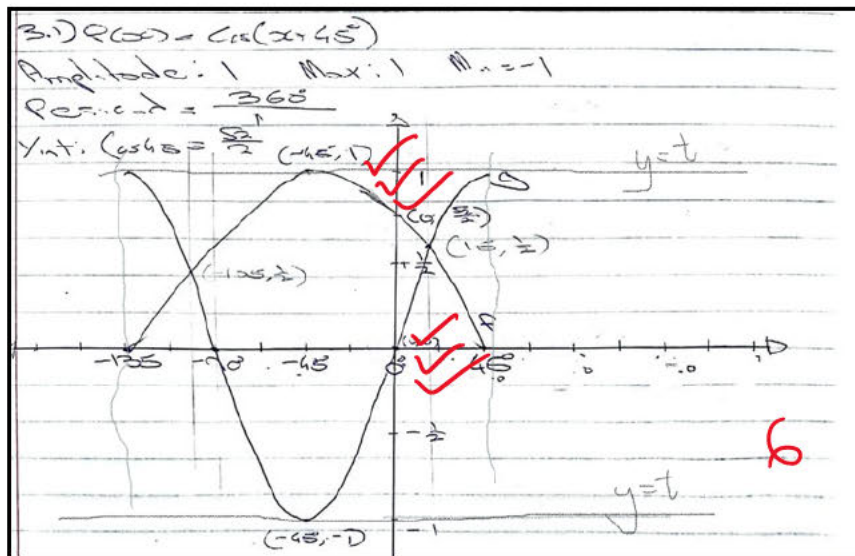 3.1) P(x) = Cos(x+45°)
Amplitude: 1 Max: 1 Min = -1
Period = 360° / 1
Yint: Cos45 = √2/2
(-45, 1)
y=t
1
(0; √2/2)
(15, 1/2)
(-105, 1/2)
+ 1/2
-135 -90 -45 0° 45°
- 1/2
6
y=t
(-45, -1)
-1